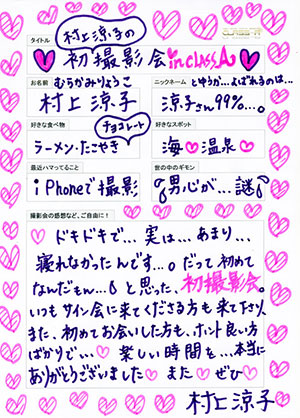 タイトル
村上涼子の
初撮影会 in class A
お名前
むらかみりょうこ
村上 涼子
ニックネーム
とゆうか…よばれるのは…
涼子さん99%…。
好きな食べ物
チョコレート
ラーメン・たこやき
好きなスポット
海♡温泉
最近ハマってること
iPhoneで撮影
世の中のギモン
男心が…謎
撮影会の感想など、ご自由に!
♡ドキドキで…実は…あまり…
寝れなかったんです…。だって初めて
なんだもん…。と思った、初撮影会。
いつもサイン会に来てくださる方も来て下さり、
また、初めてお会いした方も、ホント良い方
ばかりで…♡楽しい時間を…本当に
ありがとうございました♡また♡ぜひ♡
村上涼子